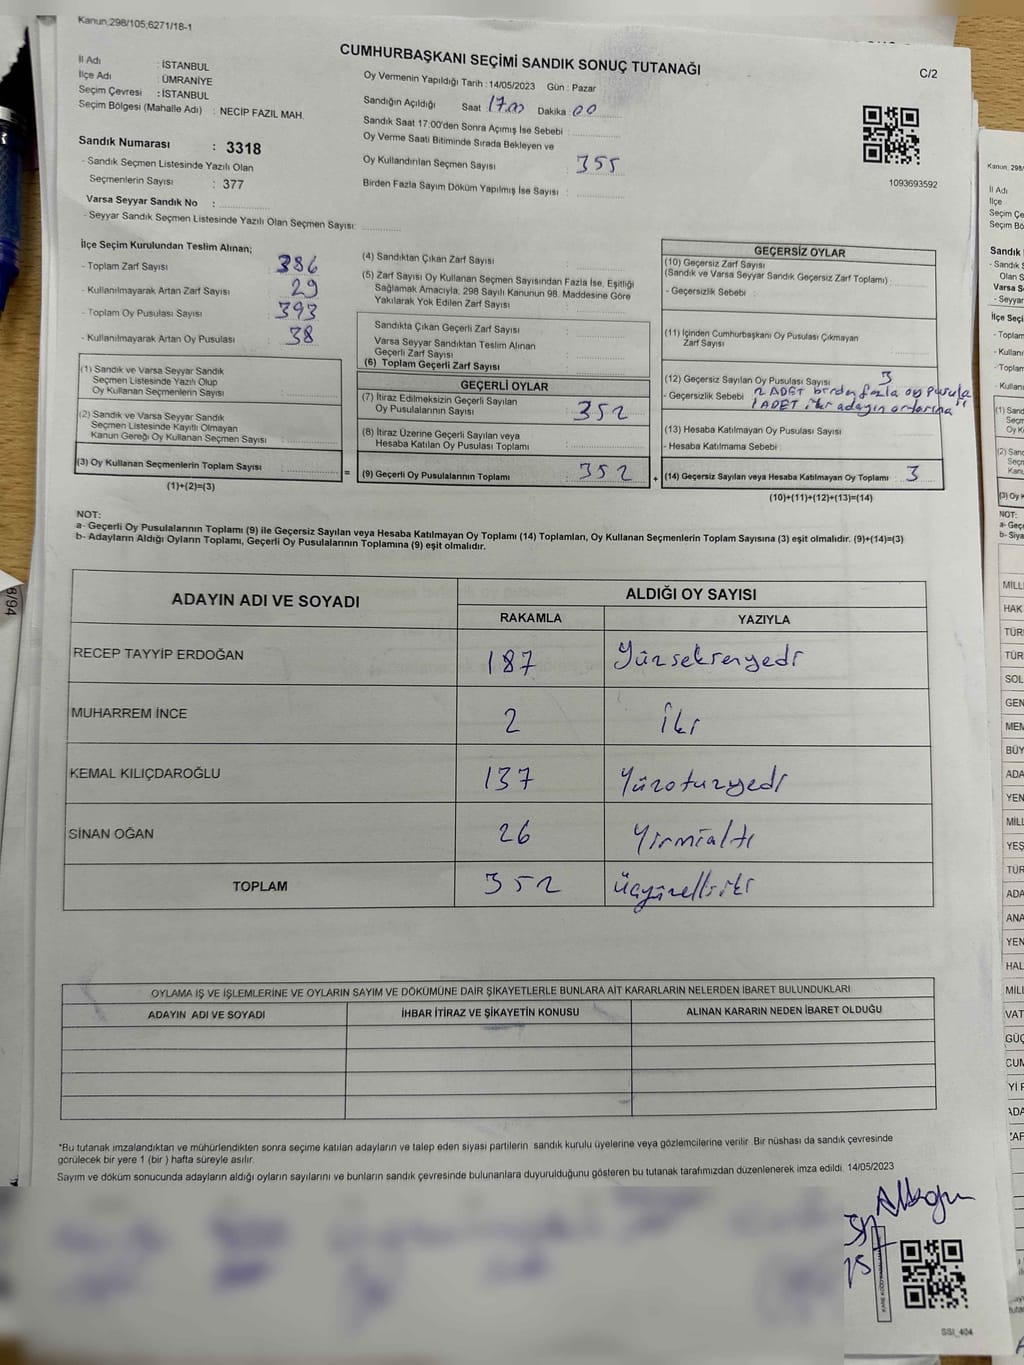 Kanun;298/105;6271/18-1
CUMHURBAŞKANI SEÇİMİ SANDIK SONUÇ TUTANAĞI
C/2
İl Adı : İSTANBUL
İlçe Adı : ÜMRANİYE
Seçim Çevresi : İSTANBUL
Seçim Bölgesi (Mahalle Adı) : NECİP FAZIL MAH.
Sandık Numarası : 3318
- Sandık Seçmen Listesinde Yazılı Olan
Seçmenlerin Sayısı : 377
Varsa Seyyar Sandık No :
- Seyyar Sandık Seçmen Listesinde Yazılı Olan Seçmen Sayısı:
Oy Vermenin Yapıldığı Tarih : 14/05/2023 Gün : Pazar
Sandığın Açıldığı Saat 17.00 Dakika 00
Sandık Saat 17:00'den Sonra Açımış İse Sebebi :
Oy Verme Saati Bitiminde Sırada Bekleyen ve
Oy Kullandırılan Seçmen Sayısı : 355
Birden Fazla Sayım Döküm Yapılmış İse Sayısı :
1093693592
İlçe Seçim Kurulundan Teslim Alınan;
- Toplam Zarf Sayısı : 386
- Kullanılmayarak Artan Zarf Sayısı : 29
- Toplam Oy Pusulası Sayısı : 393
- Kullanılmayarak Artan Oy Pusulası : 38
(1) Sandık ve Varsa Seyyar Sandık
Seçmen Listesinde Yazılı Olup
Oy Kullanan Seçmenlerin Sayısı :
(2) Sandık ve Varsa Seyyar Sandık
Seçmen Listesinde Kayıtlı Olmayan
Kanun Gereği Oy Kullanan Seçmen Sayısı :
(3) Oy Kullanan Seçmenlerin Toplam Sayısı :
(1)+(2)=(3)
=
(4) Sandıktan Çıkan Zarf Sayısı :
(5) Zarf Sayısı Oy Kullanan Seçmen Sayısından Fazla İse, Eşitliği
Sağlamak Amacıyla, 298 Sayılı Kanunun 98. Maddesine Göre
Yakılarak Yok Edilen Zarf Sayısı :
Sandıkta Çıkan Geçerli Zarf Sayısı :
Varsa Seyyar Sandıktan Teslim Alınan
Geçerli Zarf Sayısı :
(6) Toplam Geçerli Zarf Sayısı :
GEÇERLİ OYLAR
(7) İtiraz Edilmeksizin Geçerli Sayılan
Oy Pusulalarının Sayısı : 352
(8) İtiraz Üzerine Geçerli Sayılan veya
Hesaba Katılan Oy Pusulaları Toplamı :
(9) Geçerli Oy Pusulalarının Toplamı : 352
+
GEÇERSİZ OYLAR
(10) Geçersiz Zarf Sayısı
(Sandık ve Varsa Seyyar Sandık Geçersiz Zarf Toplamı) :
- Geçersizlik Sebebi :
(11) İçinden Cumhurbaşkanı Oy Pusulası Çıkmayan
Zarf Sayısı :
(12) Geçersiz Sayılan Oy Pusulası Sayısı : 3
- Geçersizlik Sebebi : 2 ADET birden fazla oy pusula
1 ADET iki adayın ortarına
(13) Hesaba Katılmayan Oy Pusulası Sayısı :
- Hesaba Katılmama Sebebi :
(14) Geçersiz Sayılan veya Hesaba Katılmayan Oy Toplamı : 3
(10)+(11)+(12)+(13)=(14)
NOT:
a- Geçerli Oy Pusulalarının Toplamı (9) ile Geçersiz Sayılan veya Hesaba Katılmayan Oy Toplamı (14) Toplamları, Oy Kullanan Seçmenlerin Toplam Sayısına (3) eşit olmalıdır. (9)+(14)=(3)
b- Adayların Aldığı Oyların Toplamı, Geçerli Oy Pusulalarının Toplamına (9) eşit olmalıdır.
ADAYIN ADI VE SOYADI
ALDIĞI OY SAYISI
RAKAMLA YAZIYLA
RECEP TAYYİP ERDOĞAN 187 Yüzseksenyedi
MUHARREM İNCE 2 İki
KEMAL KILIÇDAROĞLU 137 Yüzotuzyedi
SİNAN OĞAN 26 Yirmialtı
TOPLAM 352 Üçyüzelliiki
OYLAMA İŞ VE İŞLEMLERİNE VE OYLARIN SAYIM VE DÖKÜMÜNE DAİR ŞİKAYETLERLE BUNLARA AİT KARARLARIN NELERDEN İBARET BULUNDUKLARI
ADAYIN ADI VE SOYADI İHBAR İTİRAZ VE ŞİKAYETİN KONUSU ALINAN KARARIN NEDEN İBARET OLDUĞU
*Bu tutanak imzalandıktan ve mühürlendikten sonra seçime katılan adayların ve talep eden siyasi partilerin sandık kurulu üyelerine veya gözlemcilerine verilir. Bir nüshası da sandık çevresinde
görülecek bir yere 1 (bir) hafta süreyle asılır.
Sayım ve döküm sonucunda adayların aldığı oyların sayılarını ve bunların sandık çevresinde bulunanlara duyurulduğunu gösteren bu tutanak tarafımızdan düzenlenerek imza edildi. 14/05/2023
SSI_404